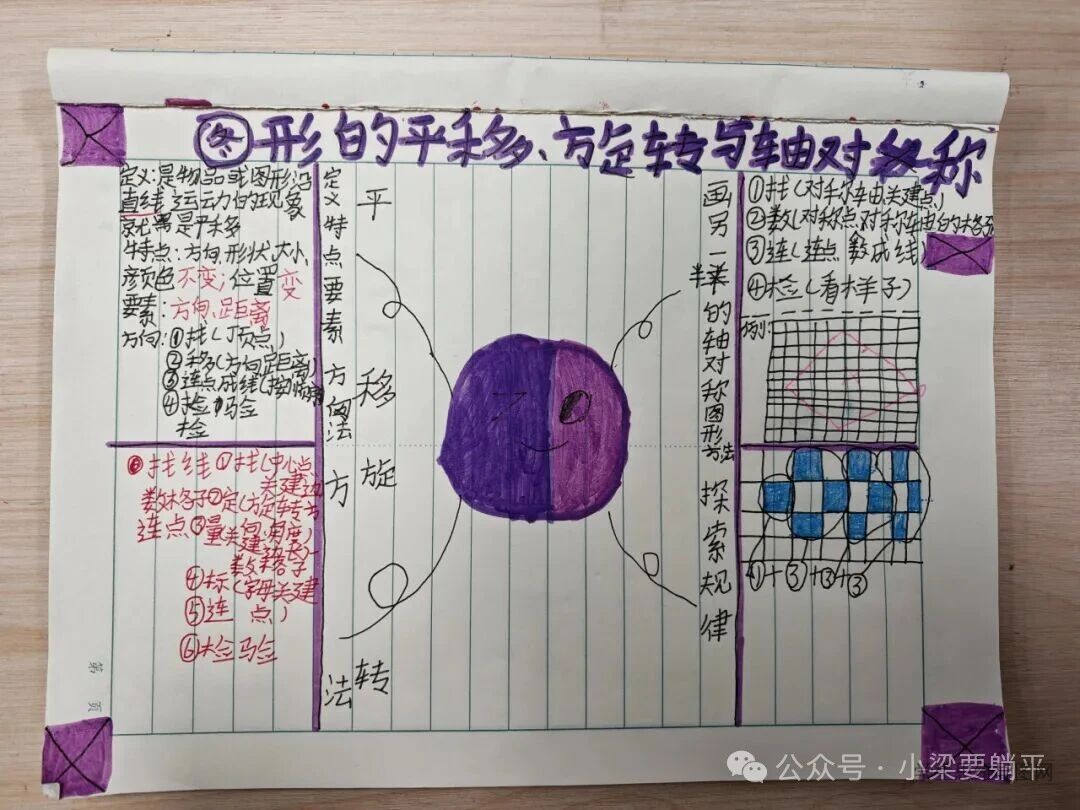 图形的平移、方旋转与轴对称
定义:是物品或图形沿
直线运动的现象
就是平移
特点:方向、形状、大小、
颜色不变;位置变
要素:方向、距离
方向:①找(顶点)
②移(方向,距离)
③连点成线(按顺序)
④检验
检
定义 特点 要素 方法
平移
①找(对称轴,关建点)
②数(对称点对称轴的格子
③连(连点 成线)
④检(看样子)
例:
画另一半的轴对称图形方法
找线①找(中心点
关建边
数格子②定(旋转方
连点③量关建边(角度)
数格子
④标(字母关建
⑤连 点)
⑥检验
方法
旋转
探索规律
①+③+③+③
第 页
公众号·小梁要躺平